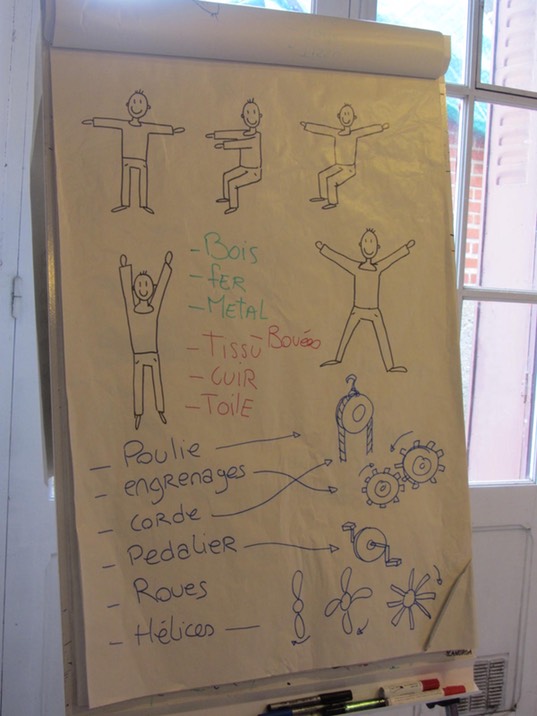 - Bois
- fer
- METAL
- Tissu Bouées
- CUIR
- TOILE
- Poulie
- engrenages
- corde
- Pedalier
- Roues
- Hélices